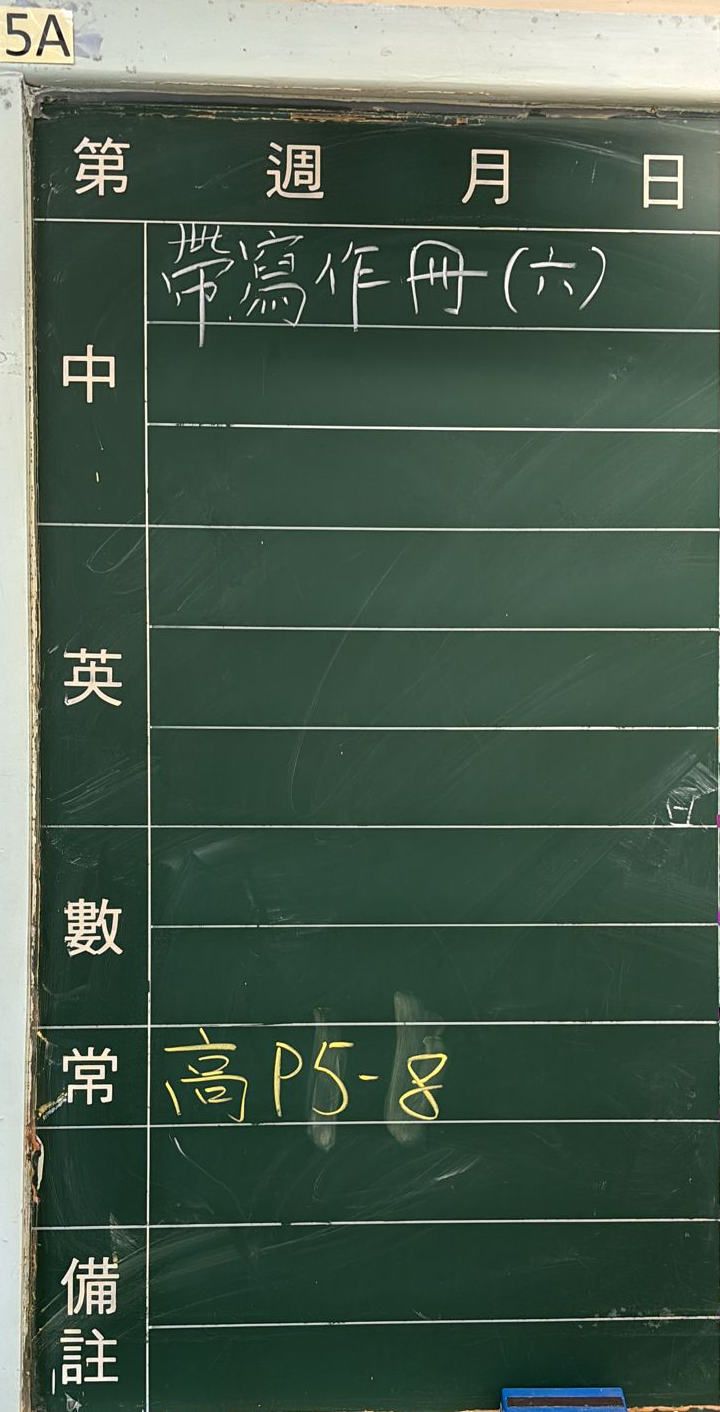 5A
第 週 月 日
中 帶寫作冊(六)
英
數
常 高P5-8
備註